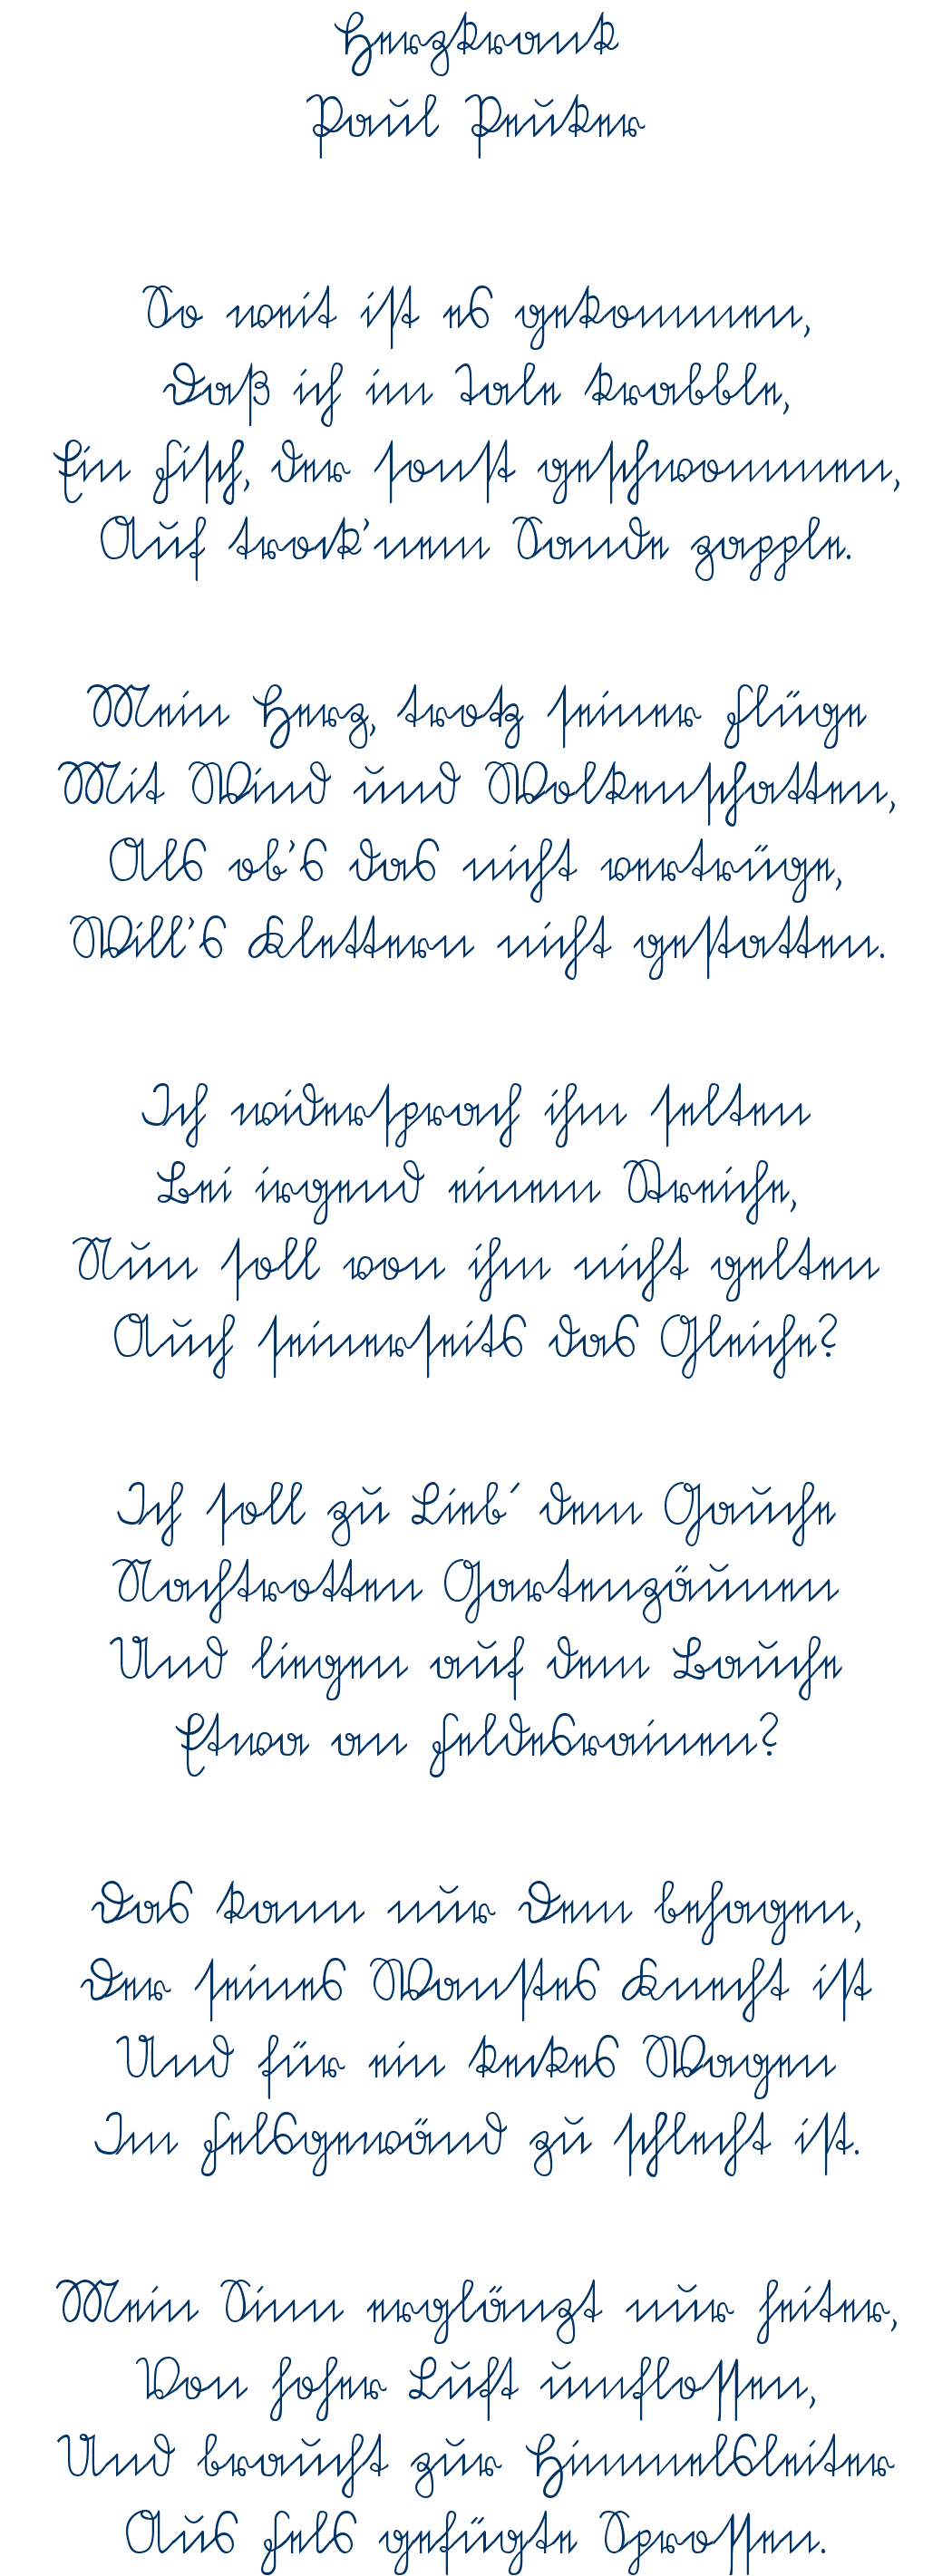 Herzkrank
Paul Peuker
So weit ist es gekommen,
Daß ich im Tale krabble,
Ein Fisch, der sonst geschwommen,
Auf trock’nem Sande zapple.
Mein Herz, trotz seiner Flüge
Mit Wind und Wolkenschatten,
Als ob’s das nicht vertrüge,
Will’s Klettern nicht gestatten.
Ich widersprach ihm selten
Bei irgend einem Streiche,
Nun soll von ihm nicht gelten
Auch seinerseits das Gleiche?
Ich soll zu Lieb´ dem Gauche
Nachtrotten Gartenzäunen
Und liegen auf dem Bauche
Etwa an Feldesrainen?
Das kann nur Dem behagen,
Der seines Wanstes Knecht ist
Und für ein keckes Wagen
Im Felsgewänd zu schlecht ist.
Mein Sinn erglänzt nur heiter,
Von hoher Luft umflossen,
Und braucht zur Himmelsleiter
Aus Fels gefügte Sprossen.